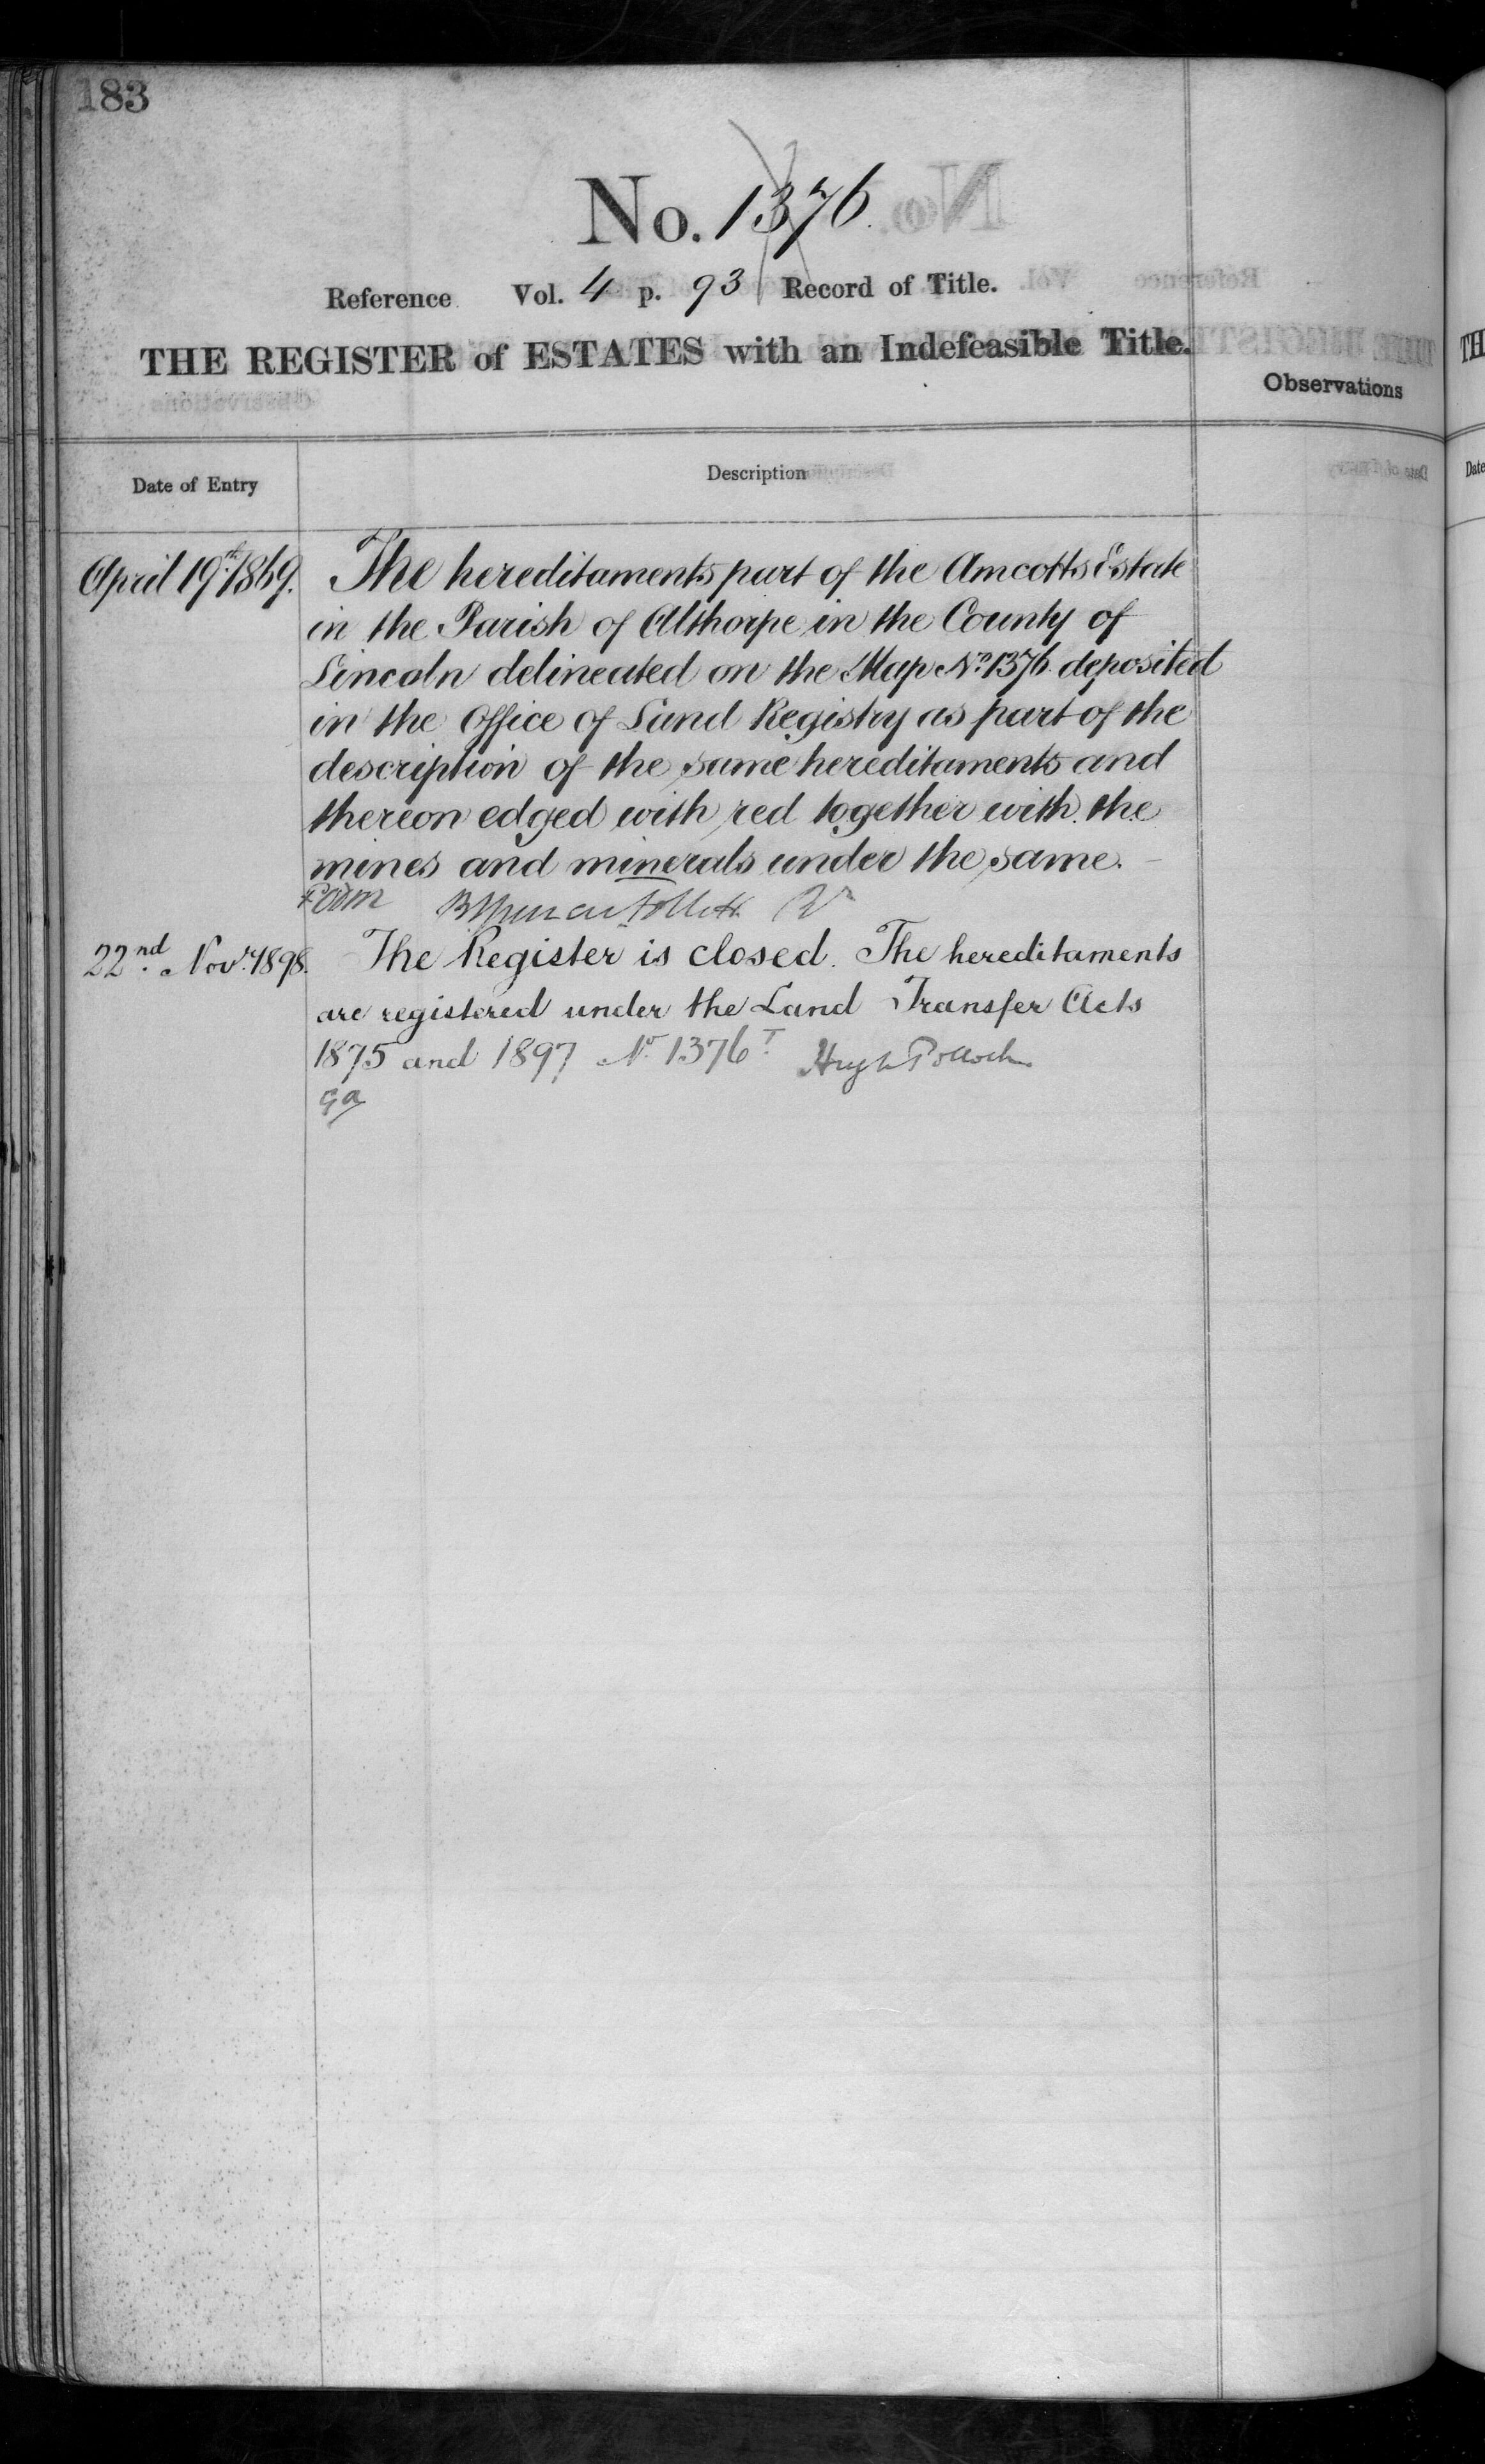 183
No. 1376.
Reference Vol. 4 p. 93 Record of Title.
THE REGISTER of ESTATES with an Indefeasible Title.
Observations
Date of Entry
Description
April 19th. 1869. The hereditaments part of the Amcotts Estate
in the Parish of Althorpe in the County of
Lincoln delineated on the Map No. 1376 deposited
in the Office of Land Registry as part of the
description of the same hereditaments and
thereon edged with red together with the
mines and minerals under the same.
Follett Rr
22nd. Novr. 1898. The Register is closed. The hereditaments
are registered under the Land Transfer Acts
1875 and 1897 No. 1376T. Hugh Pollock
TH
Date